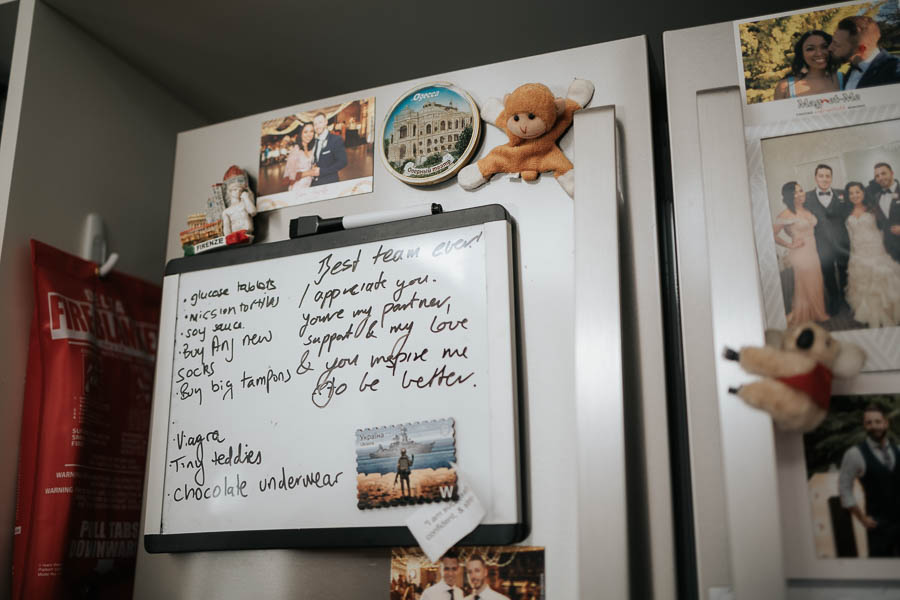 FIRE BLANKET
WARNING
WARNING
PULL TABS
DOWNWARD
FIRENZE
Одесса
Оперный театр
Best team ever!
I appreciate you.
you're my partner,
support & my love
& you inspire me
to be better.
• glucose tablets
• mission tortillas
• soy sauce
• Buy Anj new
socks
• Buy big tampons
• Viagra
• Tiny teddies
• chocolate underwear
Україна
Ukraine
W
"I am
confident, &
Magnet-Me